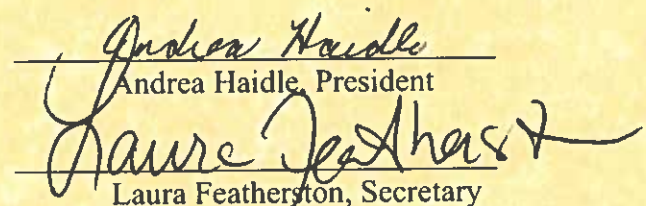 Andrea Haidle
Andrea Haidle, President
Laura Featherston
Laura Featherston, Secretary